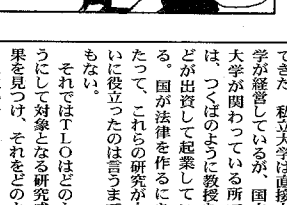 できた　私立大学は直接
学が経営しているが、国
大学が関わっている所
は、つくばのように教授
どが出資して起業して
る。国が法律を作るにあ
たって、これらの研究が
いに役立ったのは言うま
もない。
それではTLOはどの
うにして対象となる研究
果を見つけ、それをどの